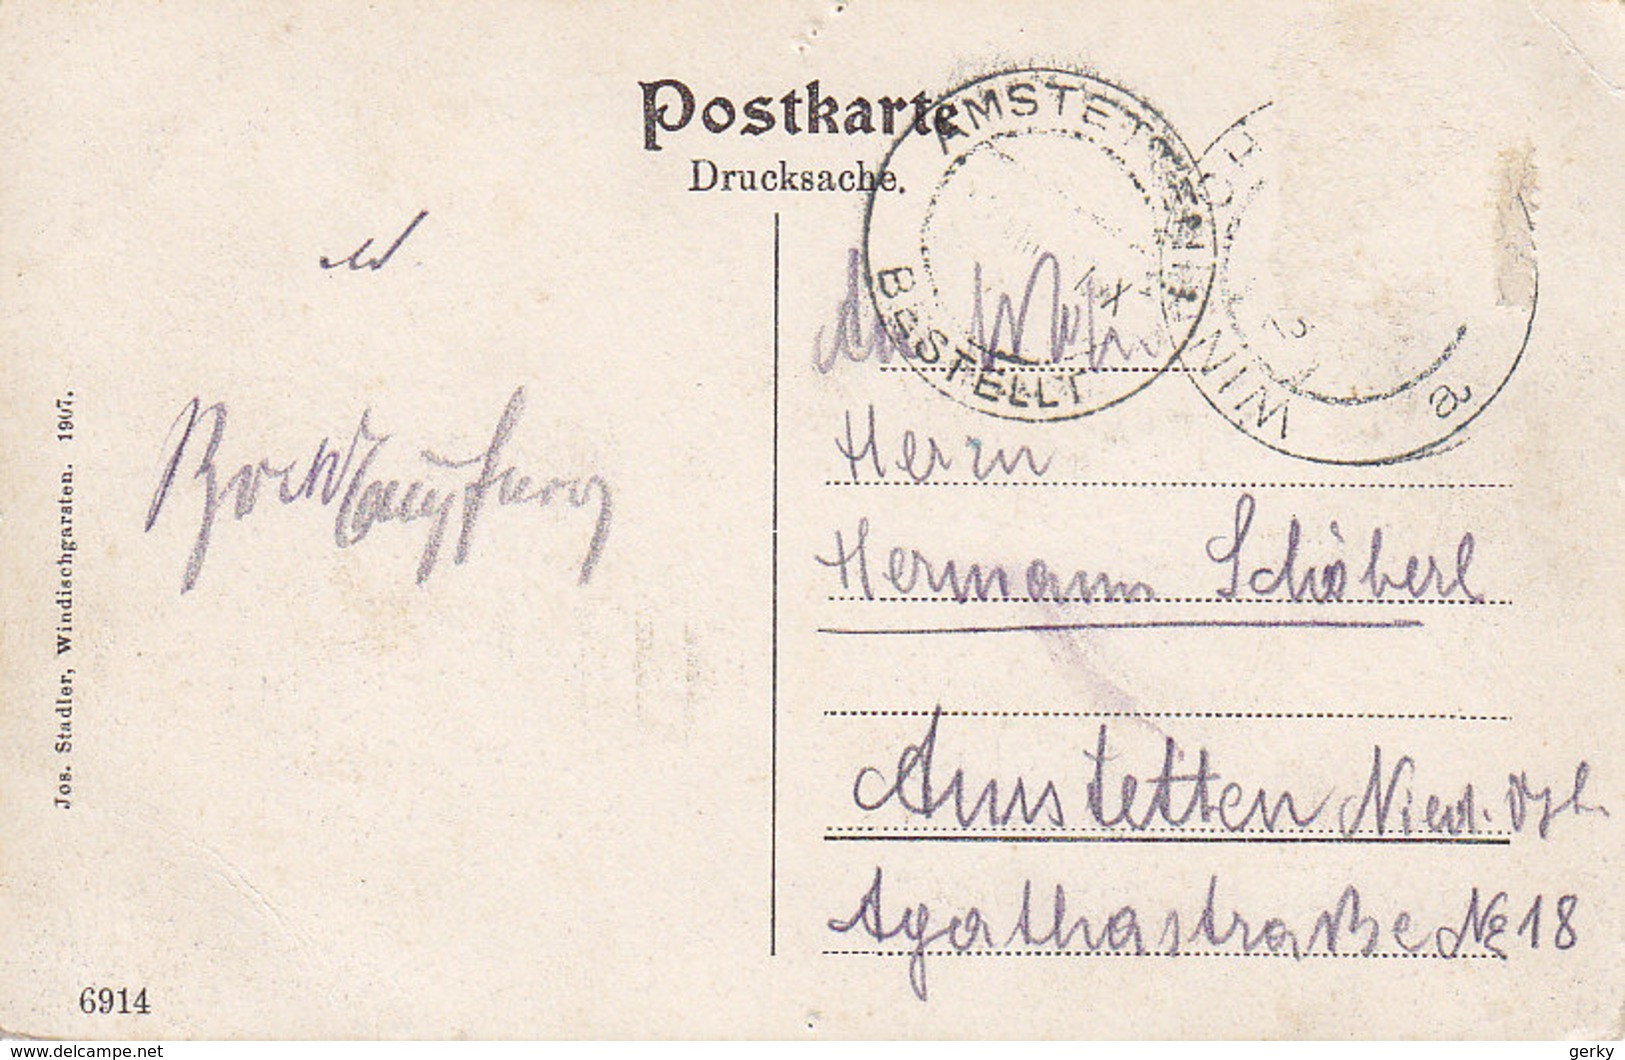 Postkarte
Drucksache.
AMSTETTEN
BESTELLT
WIN
a
An
Herrn
Hermann Schöberl
Amstetten Nied. Öst.
Agathastraße № 18
Jos. Stadler, Windischgarsten. 1907.
6914
www.delcampe.net
gerky